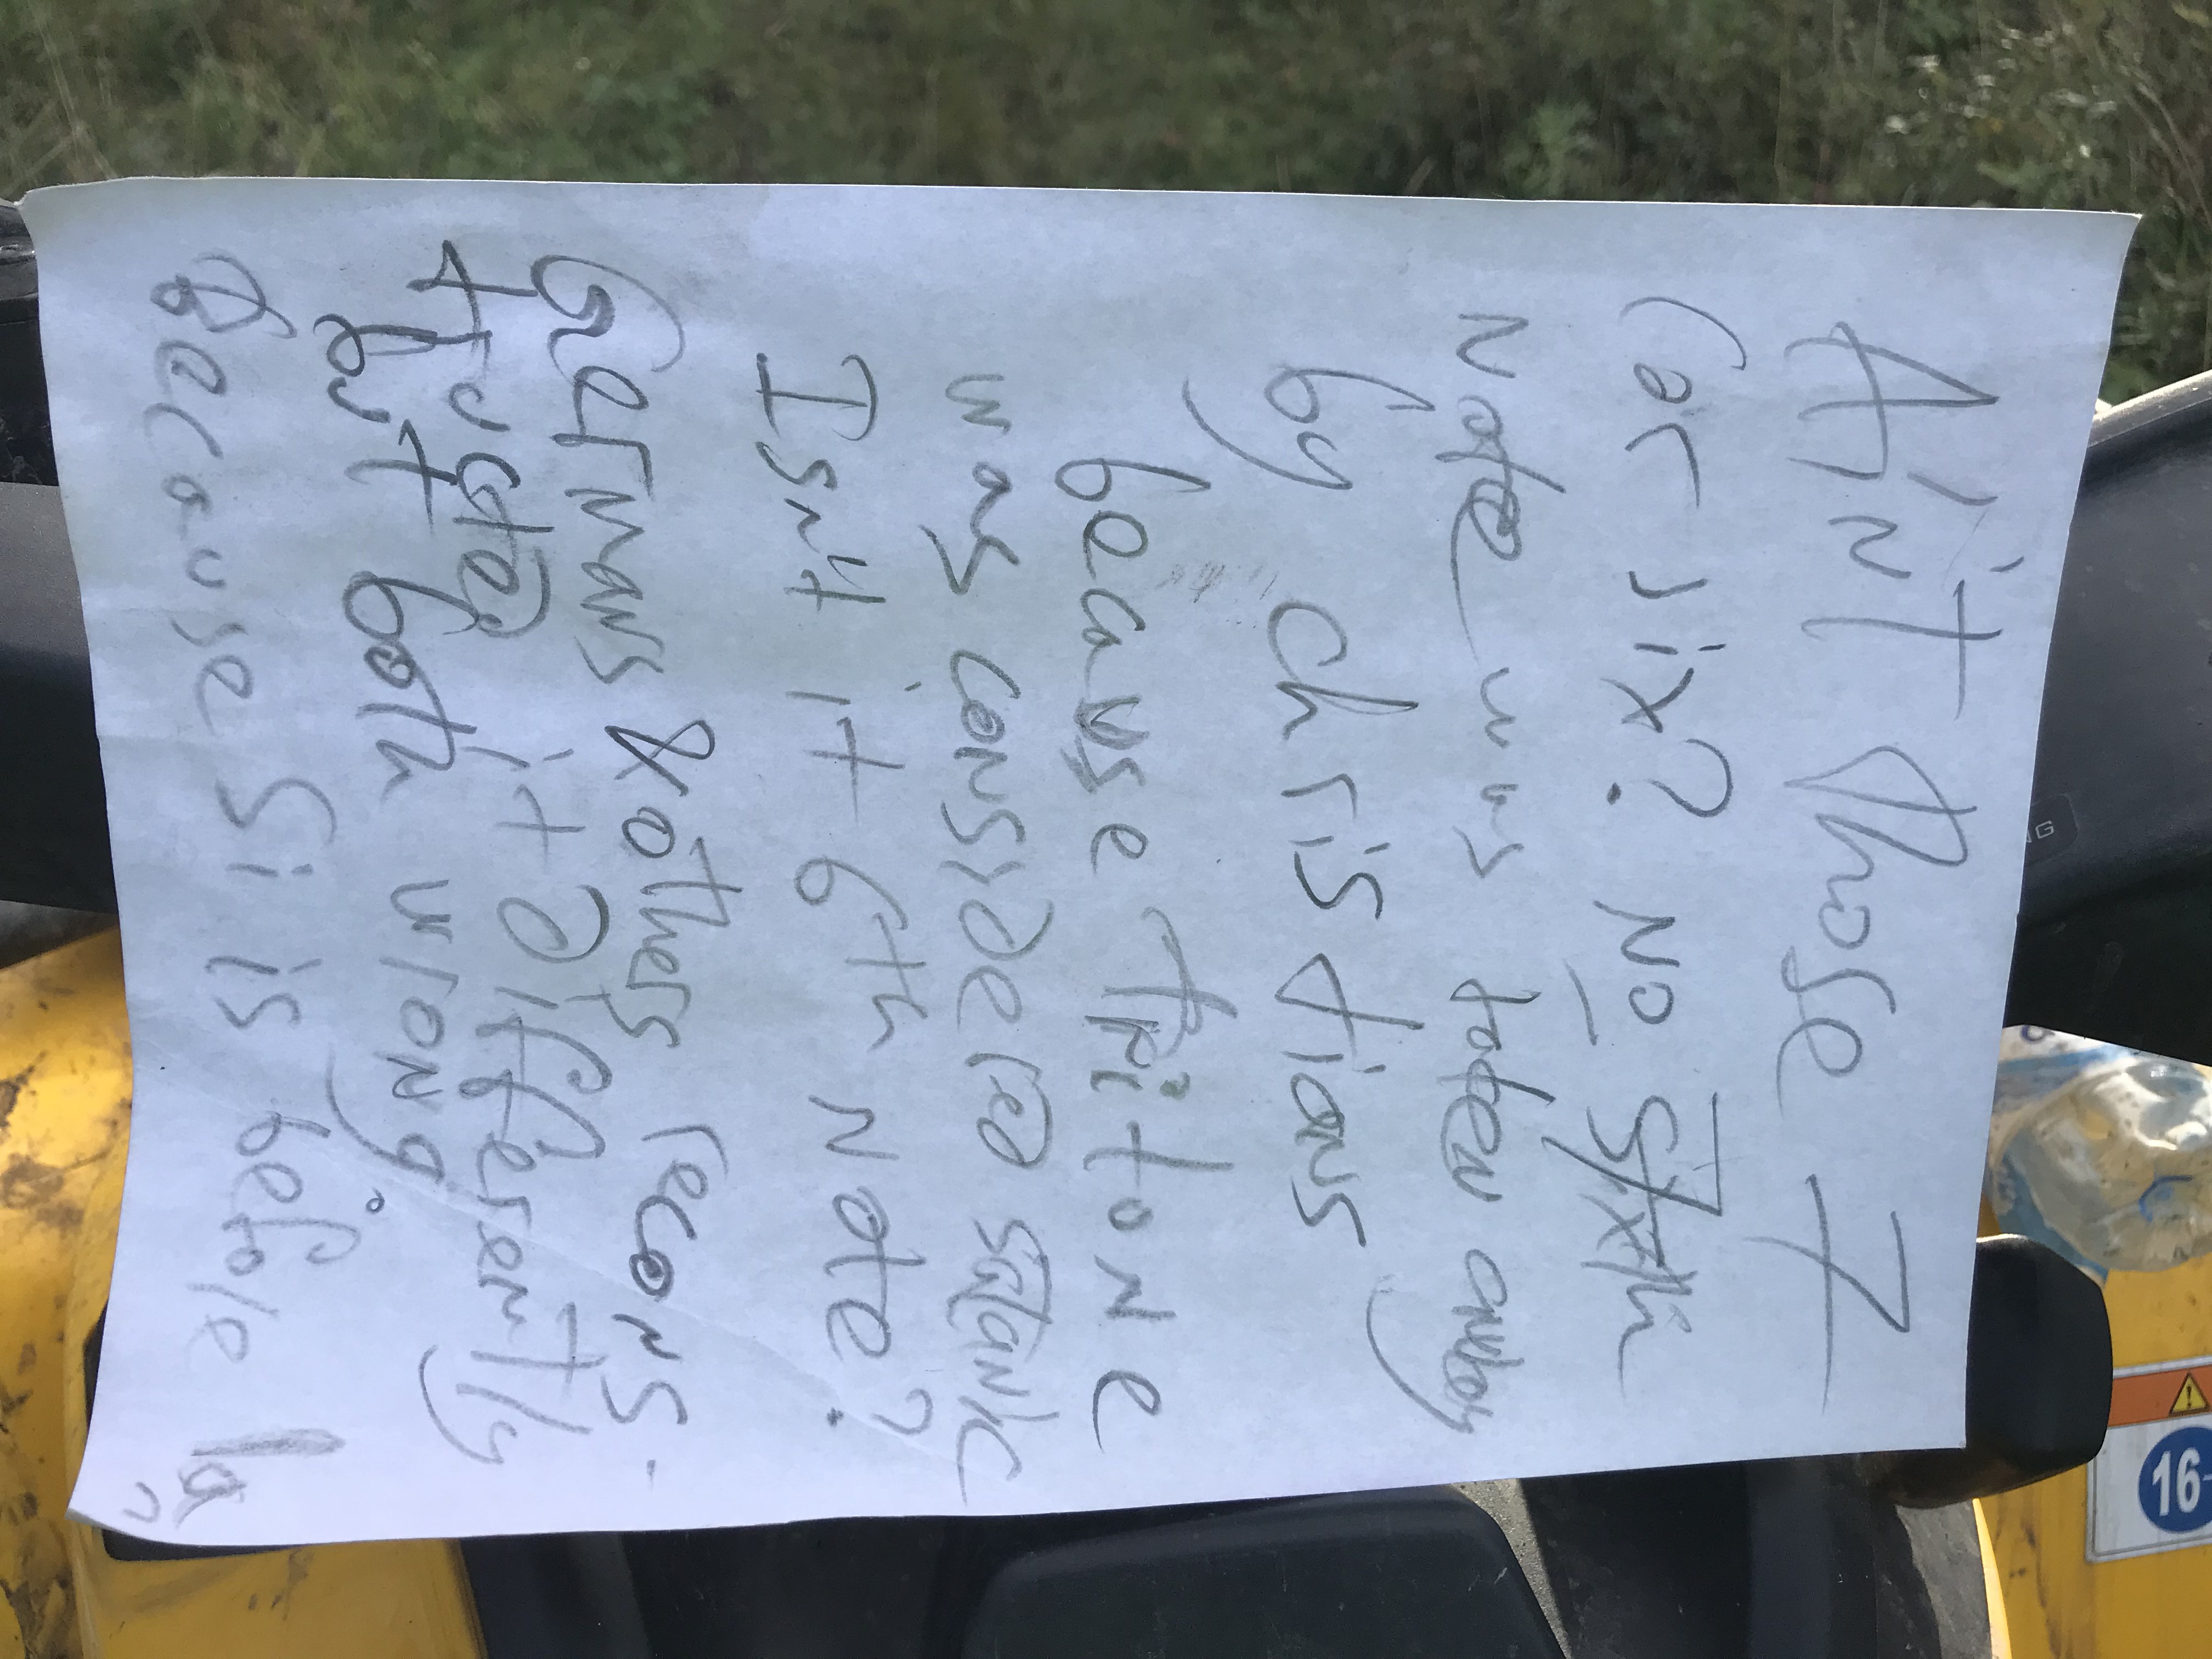 Ain't Those 7
(or six? No Sixth
Note was taken away
by christians)
because tritone
was considered satanic
Isn't it 6th Note?
Germans & others recons
tuned it differently
but both wrong.
Because Si is before la
16-
G